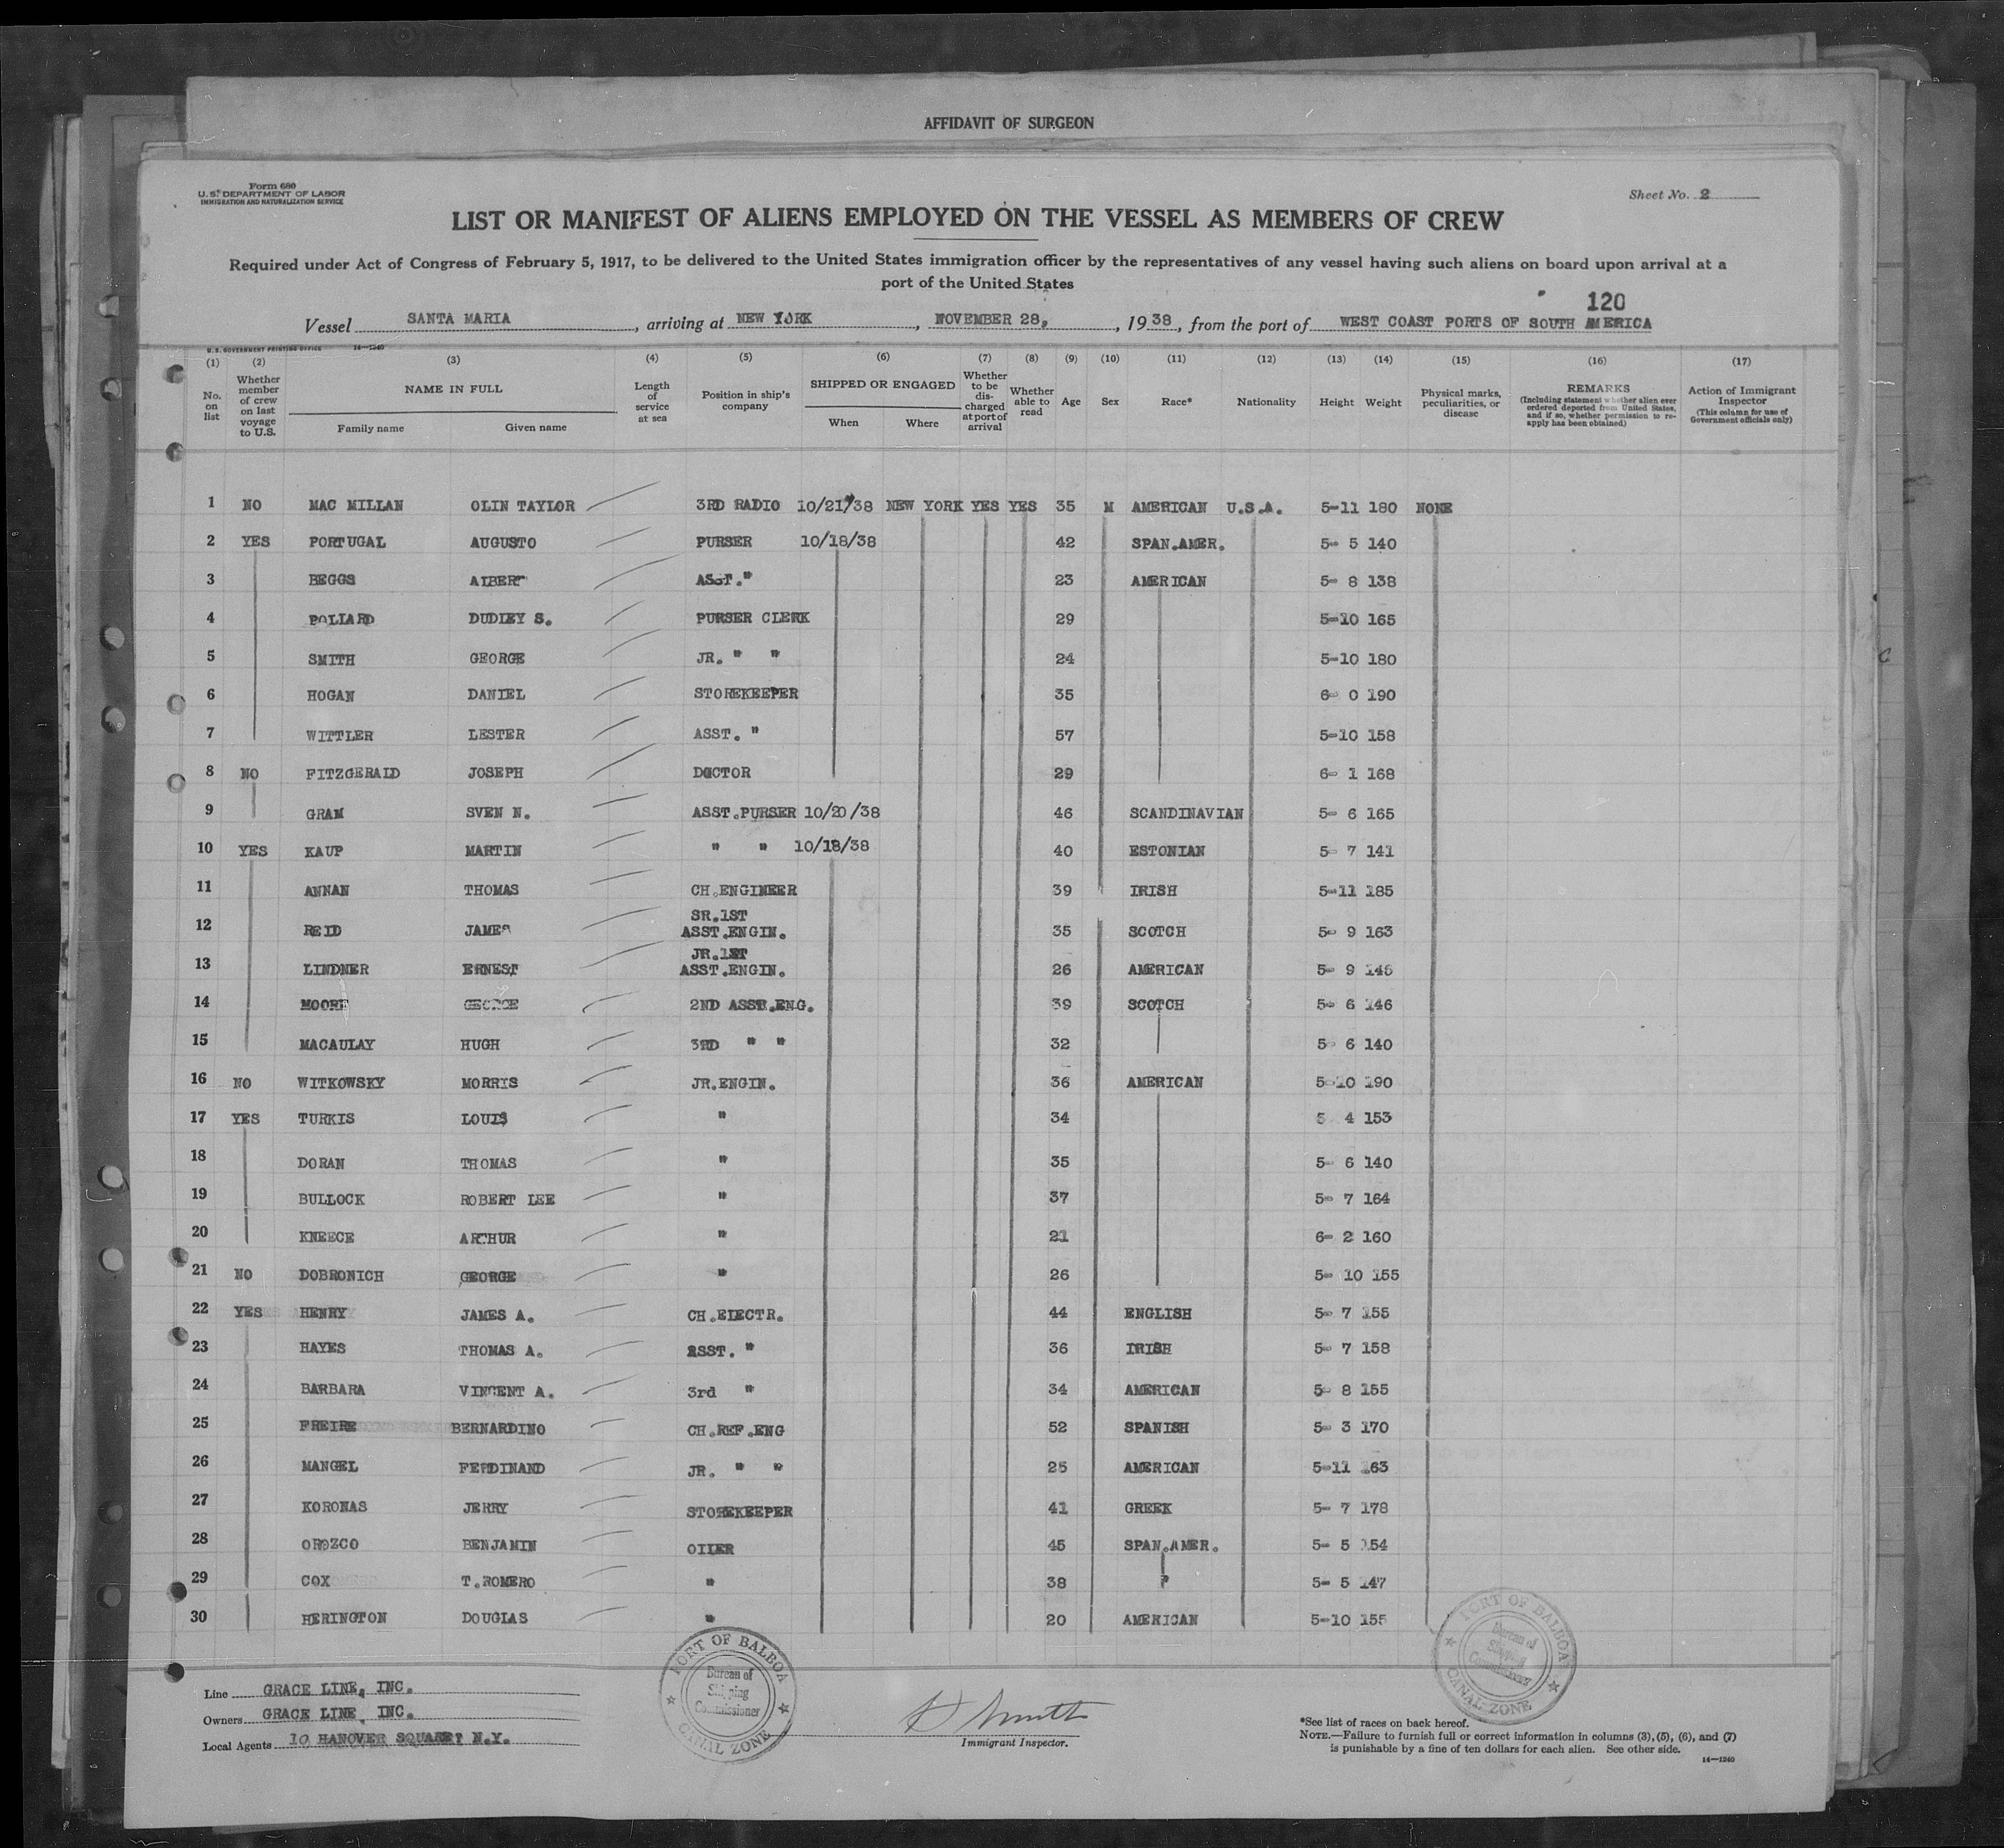 AFFIDAVIT OF SURGEON
Form 680
U. S. DEPARTMENT OF LABOR
IMMIGRATION AND NATURALIZATION SERVICE
Sheet No. 2
LIST OR MANIFEST OF ALIENS EMPLOYED ON THE VESSEL AS MEMBERS OF CREW
Required under Act of Congress of February 5, 1917, to be delivered to the United States immigration officer by the representatives of any vessel having such aliens on board upon arrival at a
port of the United States
120
Vessel SANTA MARIA, arriving at NEW YORK, NOVEMBER 28, 1938, from the port of WEST COAST PORTS OF SOUTH AMERICA
U. S. GOVERNMENT PRINTING OFFICE 14—1240
(1) (2) (3) (4) (5) (6) (7) (8) (9) (10) (11) (12) (13) (14) (15) (16) (17)
No. on list
Whether member of crew on last voyage to U.S.
NAME IN FULL
Family name Given name
Length of service at sea
Position in ship's company
SHIPPED OR ENGAGED
When Where
Whether to be discharged at port of arrival
Whether able to read
Age
Sex
Race*
Nationality
Height
Weight
Physical marks, peculiarities, or disease
REMARKS
(Including statement whether alien ever ordered deported from United States, and if so, whether permission to reapply has been obtained)
Action of Immigrant Inspector
(This column for use of Government officials only)
1 NO MAC MILLAN OLIN TAYLOR 3RD RADIO 10/21/38 NEW YORK YES YES 35 M AMERICAN U.S.A. 5-11 180 NONE
2 YES PORTUGAL AUGUSTO PURSER 10/18/38 42 SPAN.AMER. 5- 5 140
3 BEGGS ALBERT ASST." 23 AMERICAN 5- 8 138
4 POLLARD DUDLEY S. PURSER CLERK 29 5-10 165
5 SMITH GEORGE JR. " " 24 5-10 180
6 HOGAN DANIEL STOREKEEPER 35 6- 0 190
7 WITTLER LESTER ASST. " 57 5-10 158
8 NO FITZGERALD JOSEPH DOCTOR 29 6- 1 168
9 GRAM SVEN N. ASST.PURSER 10/20/38 46 SCANDINAVIAN 5- 6 165
10 YES KAUP MARTIN " " 10/18/38 40 ESTONIAN 5- 7 141
11 ANNAN THOMAS CH.ENGINEER 39 IRISH 5-11 185
12 REID JAMES SR.1ST ASST.ENGIN. 35 SCOTCH 5- 9 163
13 LINDNER ERNEST JR.1ST ASST.ENGIN. 26 AMERICAN 5- 9 145
14 MOORE GEORGE 2ND ASST.ENG. 39 SCOTCH 5- 6 146
15 MACAULAY HUGH 3RD " " 32 5- 6 140
16 NO WITKOWSKY MORRIS JR.ENGIN. 36 AMERICAN 5-10 190
17 YES TURKIS LOUIS " 34 5 4 153
18 DORAN THOMAS " 35 5- 6 140
19 BULLOCK ROBERT LEE " 37 5- 7 164
20 KNEECE ARTHUR " 21 6- 2 160
21 NO DOBRONICH GEORGE " 26 5- 10 155
22 YES HENRY JAMES A. CH.ELECTR. 44 ENGLISH 5- 7 155
23 HAYES THOMAS A. ASST. " 36 IRISH 5- 7 158
24 BARBARA VINCENT A. 3rd " 34 AMERICAN 5- 8 155
25 FREIRE BERNARDINO CH.REF.ENG 52 SPANISH 5- 3 170
26 MANGEL FERDINAND JR. " " 25 AMERICAN 5-11 163
27 KORONAS JERRY STOREKEEPER 41 GREEK 5- 7 178
28 OROZCO BENJAMIN OILER 45 SPAN.AMER. 5- 5 154
29 COX T.ROMERO " 38 " 5- 5 147
30 HERINGTON DOUGLAS " 20 AMERICAN 5-10 155
PORT OF BALBOA
Bureau of
Shipping
Commissioner
CANAL ZONE
PORT OF BALBOA
Bureau of
Shipping
Commissioner
CANAL ZONE
Line GRACE LINE, INC.
Owners GRACE LINE, INC.
Local Agents 10 HANOVER SQUARE? N.Y.
Immigrant Inspector.
*See list of races on back hereof.
NOTE.—Failure to furnish full or correct information in columns (3), (5), (6), and (7)
is punishable by a fine of ten dollars for each alien. See other side.
14—1240